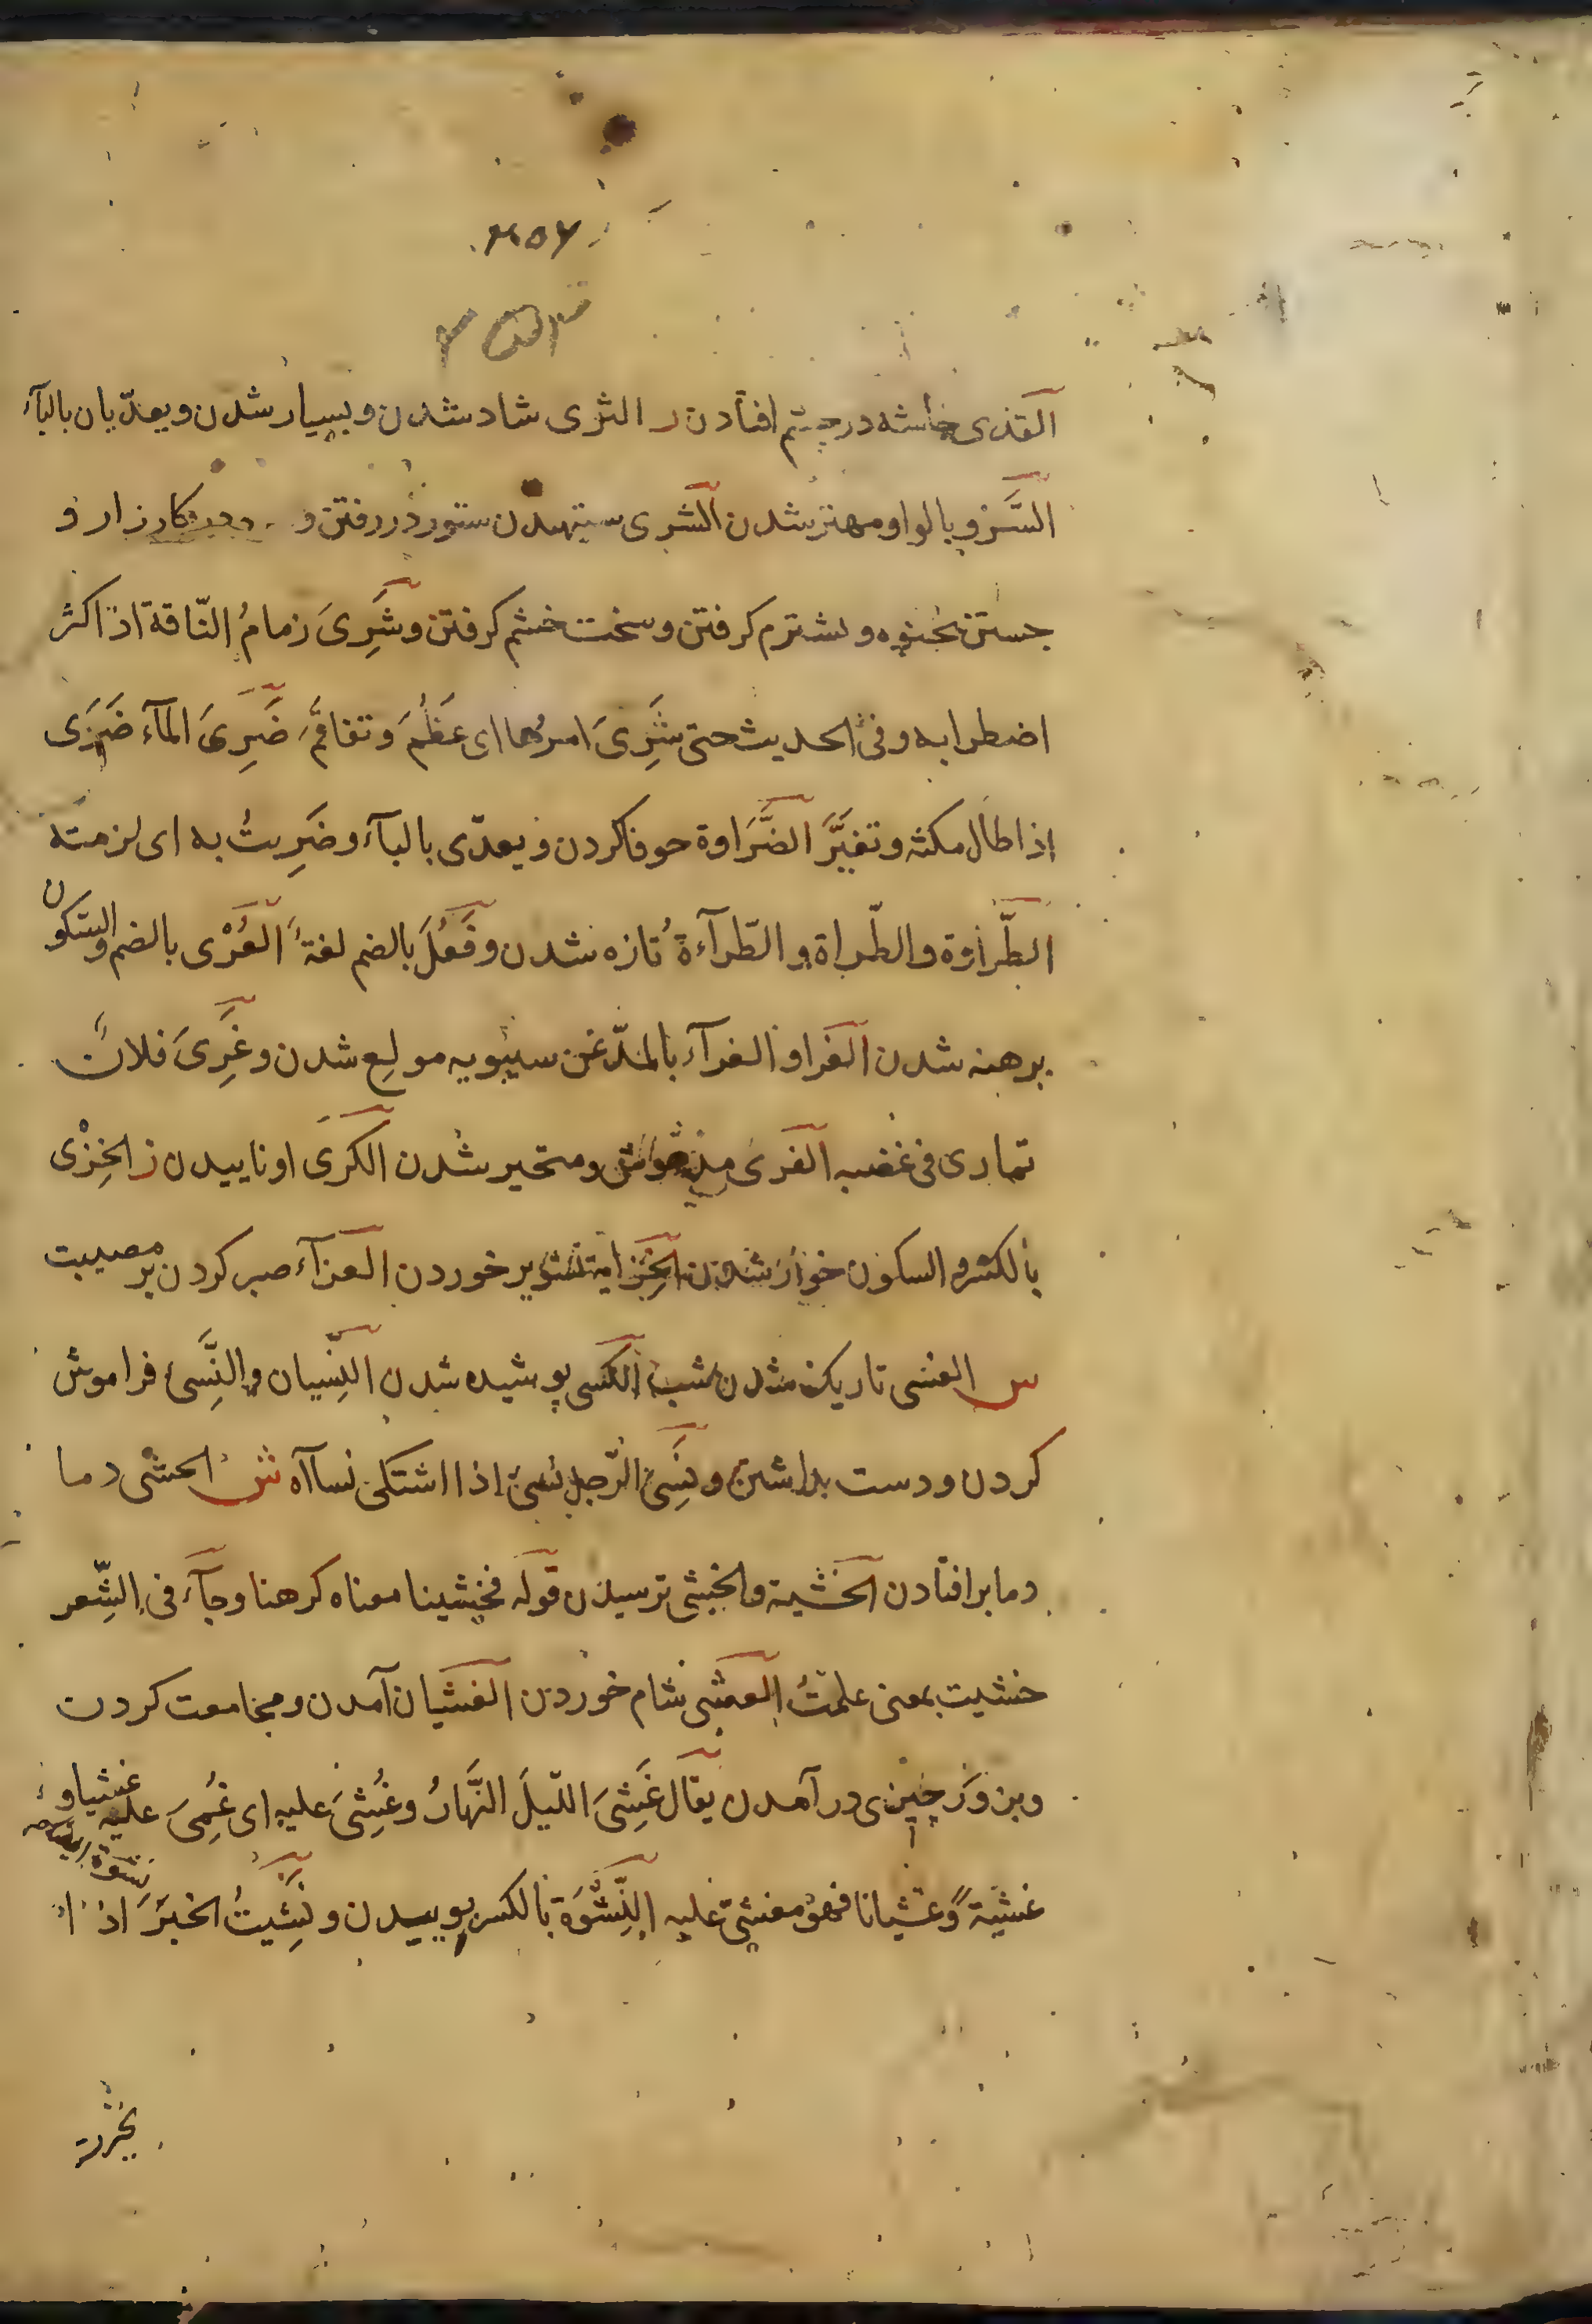 ٢٥٧
القذى خاشه در چشم افتادن ر الثرى شاد شدن و بسيار شدن ويعدّيان بالبآء
السَّرو بالواو مهتر شدن الشرى ستهيدن ستور در رفتن و كارزار و
جستن بخنوه و بشترم گرفتن و سخت خشم گرفتن وشَرِىَ زمامُ النّاقة اذا كثر
اضطرابه وفى الحديث حتى شَرِىَ امرهما اى عَظُمَ وتفاقَمَ ضَرِىَ المآء ضَرَى
إذا طال مكثه وتغيَّر الضَّرَاوة خو فاكردن و يعدّى بالبآء وضَرِيتُ به اى لزمته
الطَّراوة والطّراة والطّرآءةُ تازه شدن وفَعُلَ بالضم لغةً العُرْى بالضم والسكون
برهنه شدن الغَرا والغرآء بالمدّ عن سيبويه مولع شدن وغَرِىَ فلانٌ
تمادى فى غضبه الفرى ومتحير شدن الكَرَى اوناييدن ز الخِزْى
بالكسر والسكون خوار شدن الخَزاية تشوير خوردن العزآء صبر كردن بر مصيبت
س الغسى تاريك شدن شب الكسى پوشيده شدن النِّسيان والنَّسى فراموش
كردن و دست بداشتن ونَسِىَ الرّجل نسىً اذا اشتكى نسآه ش الحشى دما
دما برافتادن الخشية والخشى ترسيدن قوله فخشينا معناه كرهنا وجآء فى الشِّعر
خشيت بمعنى علمتُ العشى شام خوردن الغشيان آمدن و مجامعت كردن
و بزور چيزى در آمدن يقال غَشِىَ اللّيلَ النّهارُ وغُشِىَ عليه اى غُمِىَ عليه غشيا و
غشيةً وغشيانا فهو مغشىّ عليه النِّشْوَة بالكسر بوييدن ونَشِيتُ الخبرَ اذا